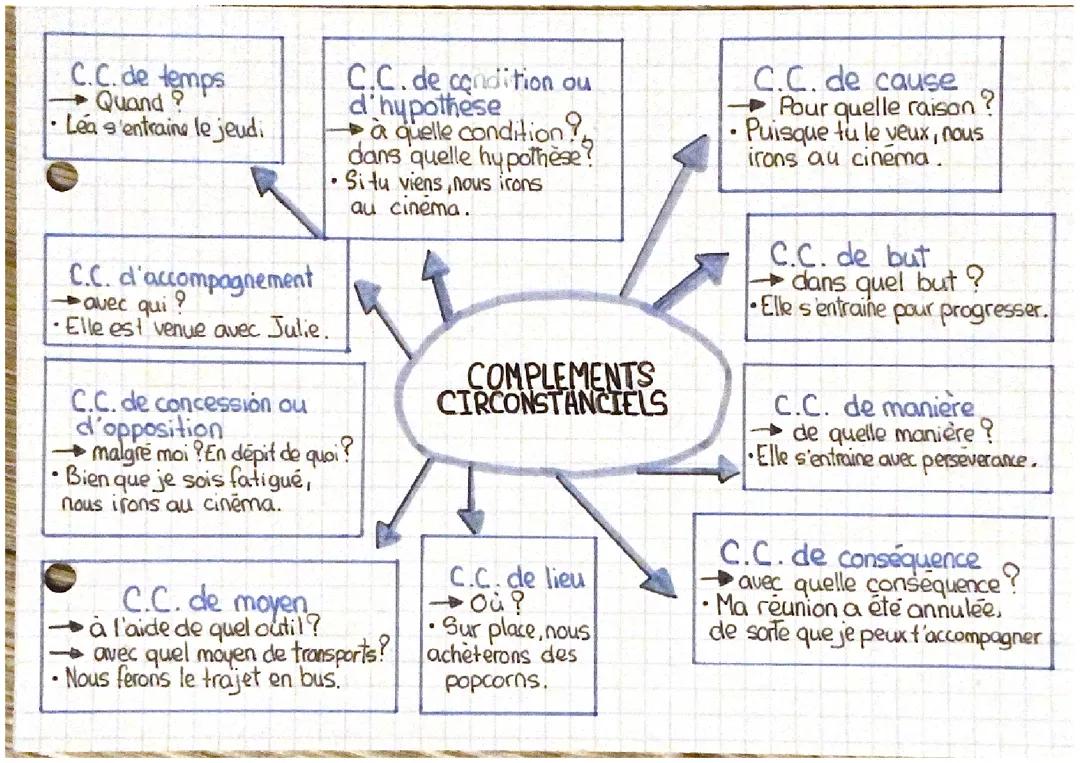 C.C. de temps
→ Quand ?
• Léa s'entraine le jeudi
C.C. de condition ou
d'hypothèse
→ à quelle condition ?,
dans quelle hypothèse ?
• Si tu viens, nous irons
au cinéma.
C.C. de cause
→ Pour quelle raison ?
• Puisque tu le veux, nous
irons au cinéma.
C.C. d'accompagnement
→ avec qui ?
• Elle est venue avec Julie.
C.C. de but
→ dans quel but ?
• Elle s'entraine pour progresser.
COMPLEMENTS
CIRCONSTANCIELS
C.C. de concession ou
d'opposition
→ malgré moi ? En dépit de quoi ?
• Bien que je sois fatigué,
nous irons au cinéma.
C.C. de manière
→ de quelle manière ?
• Elle s'entraine avec persévérance.
C.C. de moyen
→ à l'aide de quel outil ?
→ avec quel moyen de transports ?
• Nous ferons le trajet en bus.
C.C. de lieu
→ Où ?
• Sur place, nous
achèterons des
popcorns.
C.C. de conséquence
→ avec quelle conséquence ?
• Ma réunion a été annulée,
de sorte que je peux t'accompagner